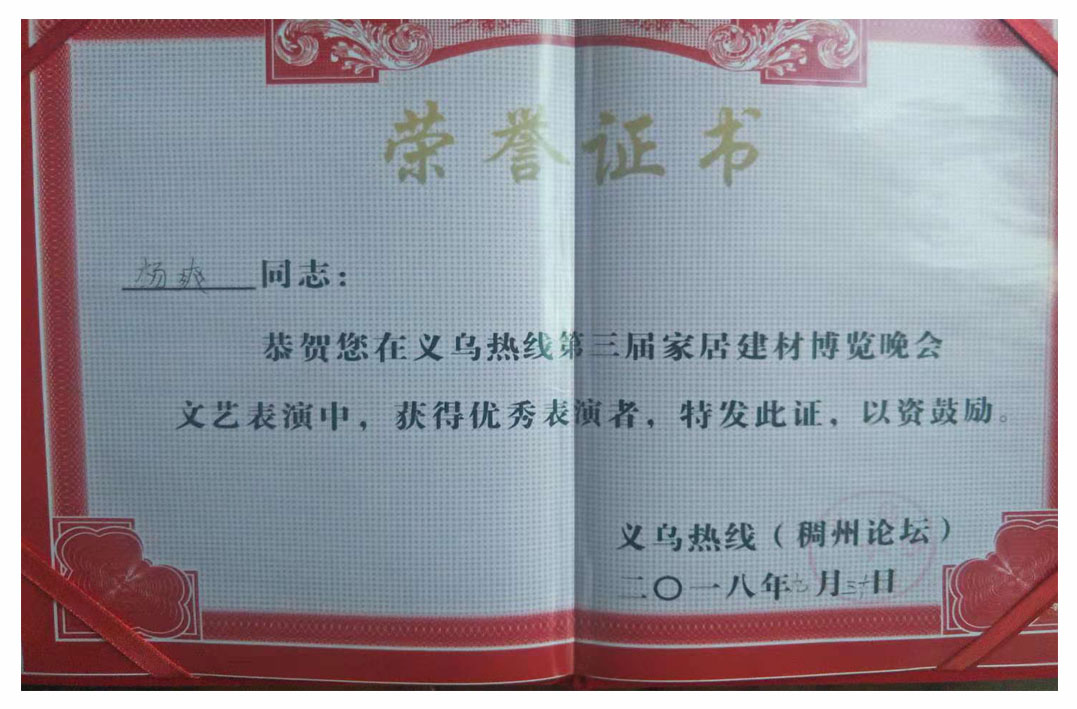 荣誉证书
杨爽同志：
恭贺您在义乌热线第三届家居建材博览晚会
文艺表演中，获得优秀表演者，特发此证，以资鼓励。
义乌热线（稠州论坛）
二〇一八年九月三十日